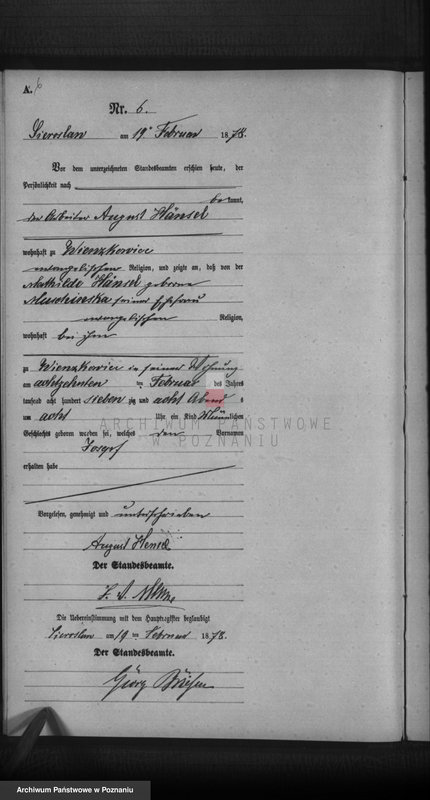 A. 6
Nr. 6.
Sieroslaw am 19ten Februar 1878.
Vor dem unterzeichneten Standesbeamten erschien heute, der
Persönlichkeit nach
bekannt,
der Arbeiter August Hänsel
wohnhaft zu Wienzkowice
evangelischen Religion, und zeigte an, daß von der
Mathilde Hänsel geborne
seiner Ehefrau
evangelischen Religion,
wohnhaft bei ihm
zu Wienzkowice in seiner Wohnung
am achtzehnten ten Februar des Jahres
tausend acht hundert siebenzig und acht Abends
um acht Uhr ein Kind männlichen
Geschlechts geboren worden sei, welches den Vornamen
Joseph
erhalten habe
Vorgelesen, genehmigt und unterschrieben
August Hensel
Der Standesbeamte.
Die Uebereinstimmung mit dem Hauptregister beglaubigt
Sieroslaw am 19 ten Februar 1878.
Der Standesbeamte.
Georg
ARCHIWUM PAŃSTWOWE
W POZNANIU
Archiwum Państwowe w Poznaniu